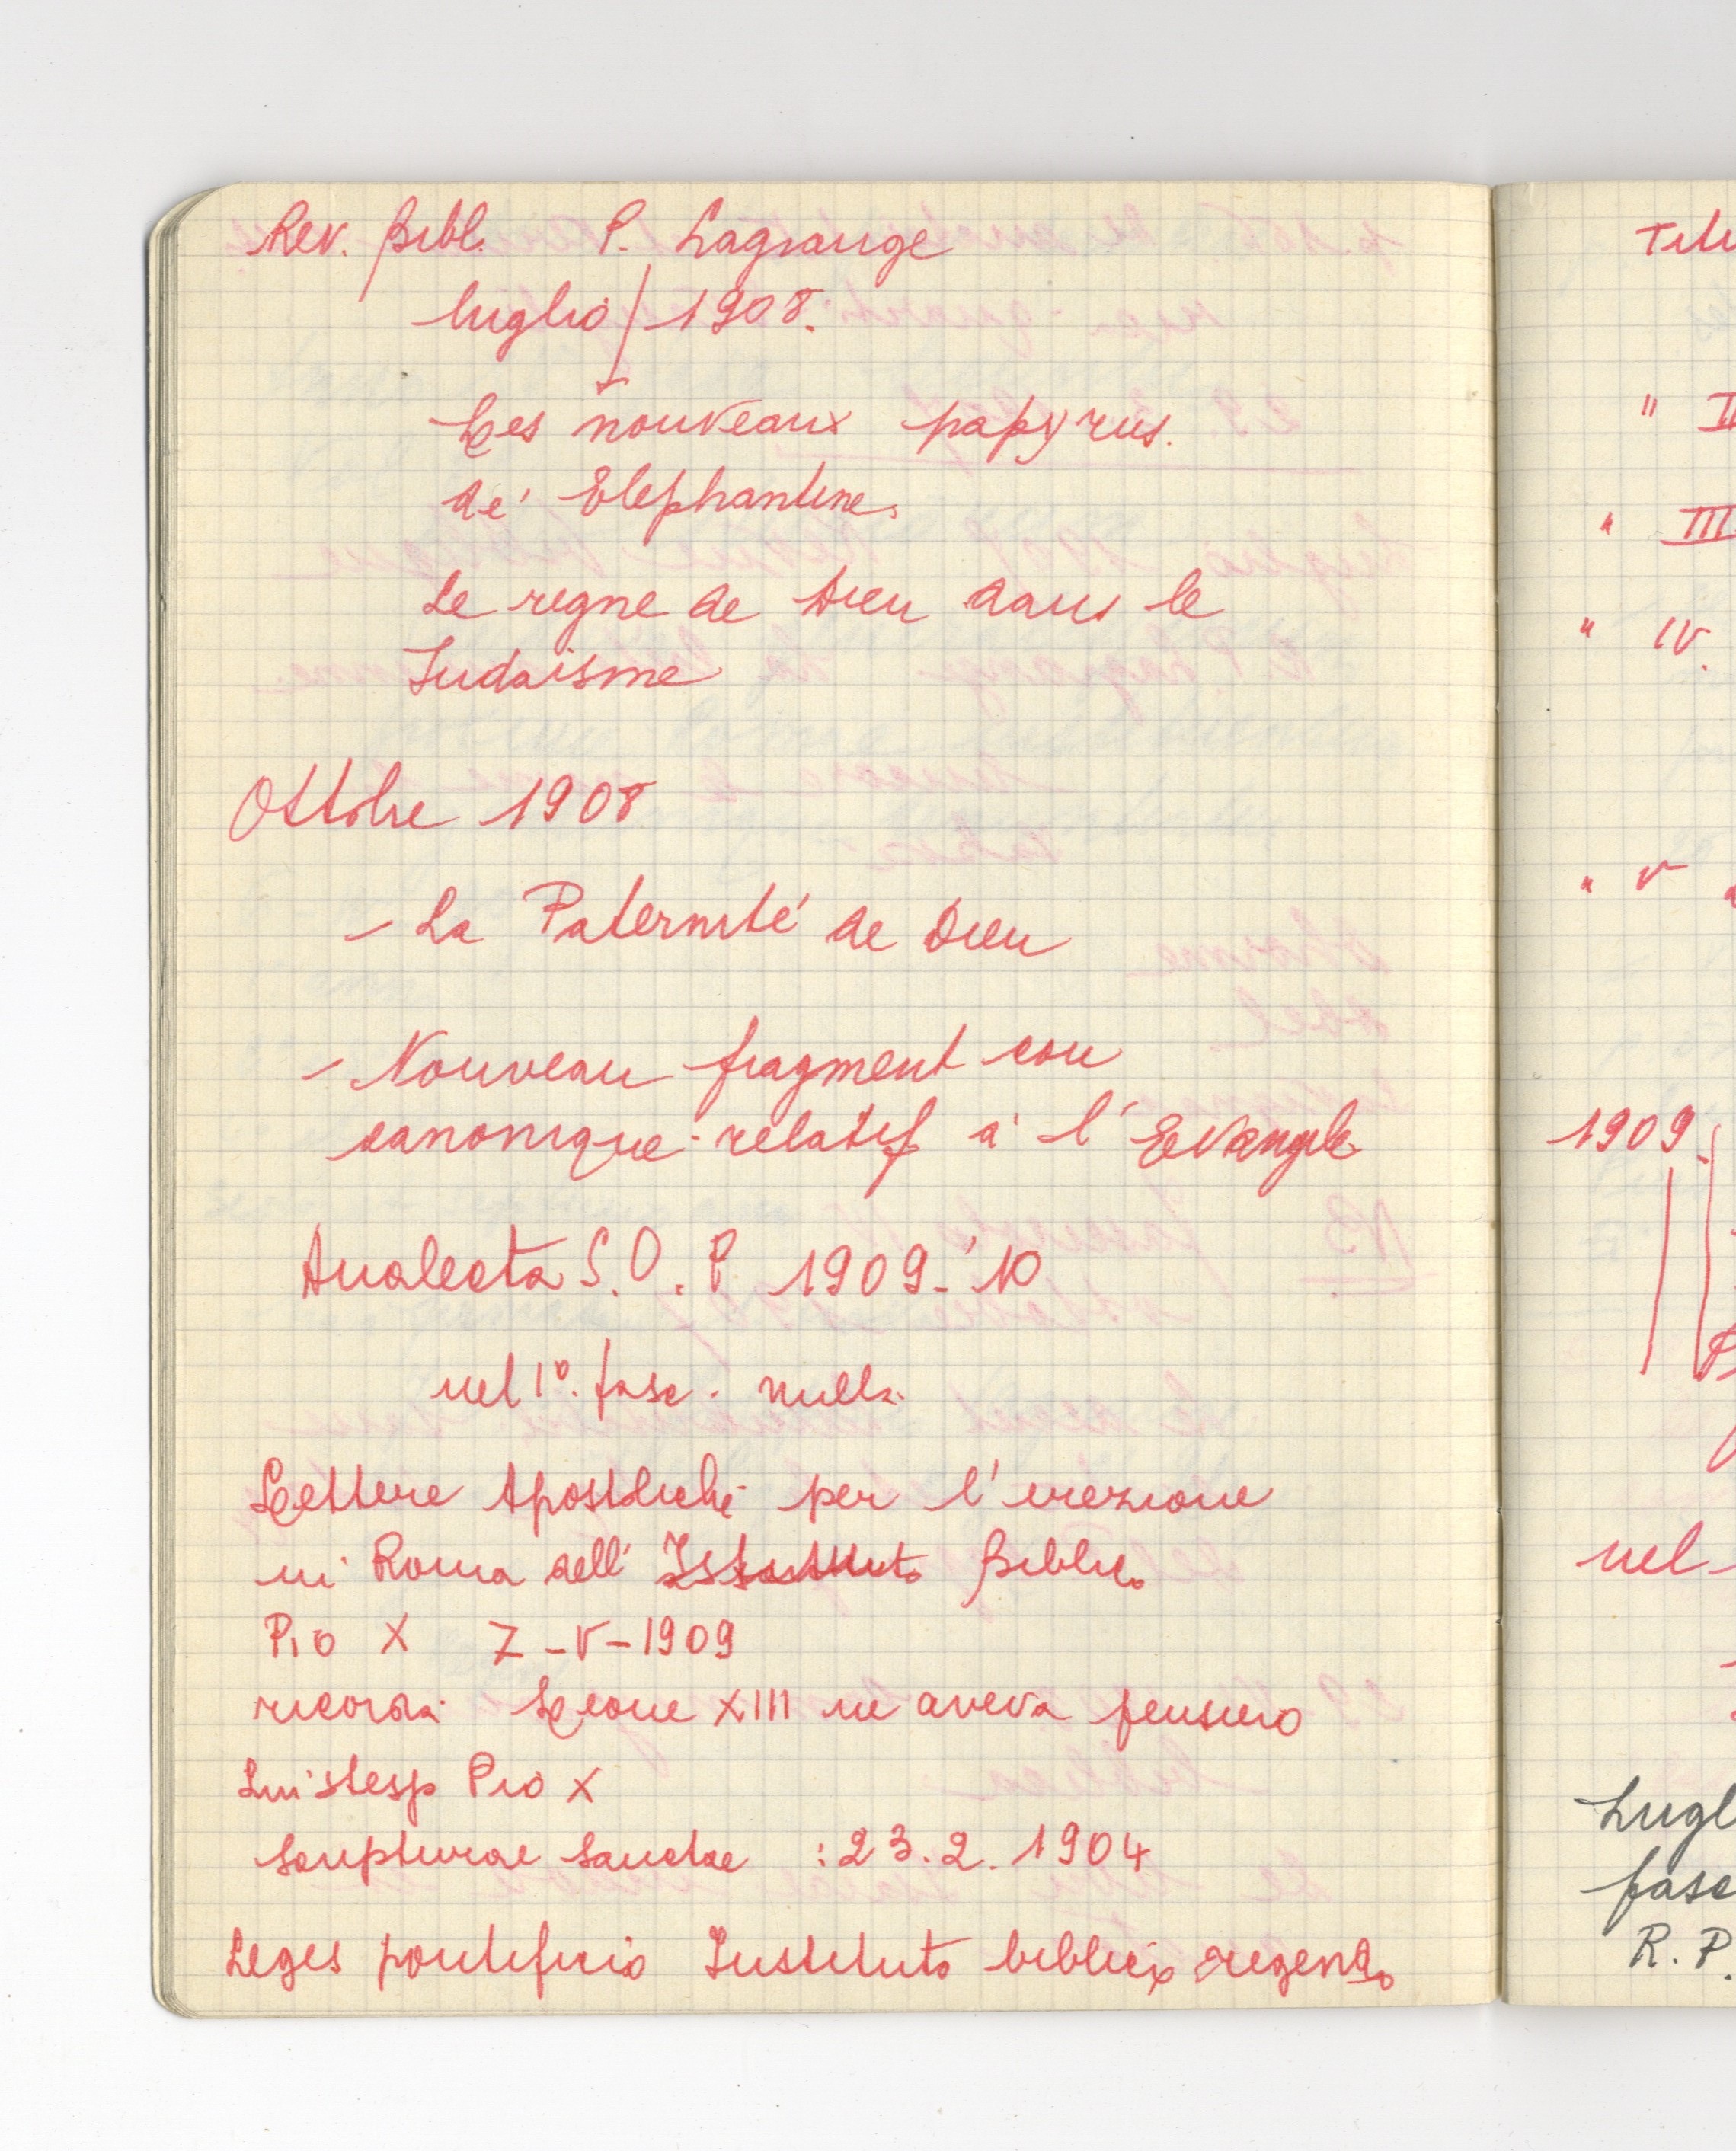 Rev. Bibl. P. Lagrange
luglio 1908.
Les nouveaux papyrus
de' Elephantine.
Le regne de Dieu dans le
Judaisme
Ottobre 1908
- La Paternité de Dieu
- Nouveau fragment
canonique relatif a' l' Evangile
Analecta S.O.P. 1909-'10
nel 1°. fasc. nulla
Lettere Apostoliche per l'erezione
in Roma dell' Istituto Biblico
Pio X 7-V-1909
ricorda Leone XIII ne aveva pensiero
Lui stesso Pio X
Scripturae Sanctae : 23.2.1904
Leges pontificio Instituto biblico regendo
1909.
" II
" III
" IV.
" V
nel
Lugl
fasc
R. P.